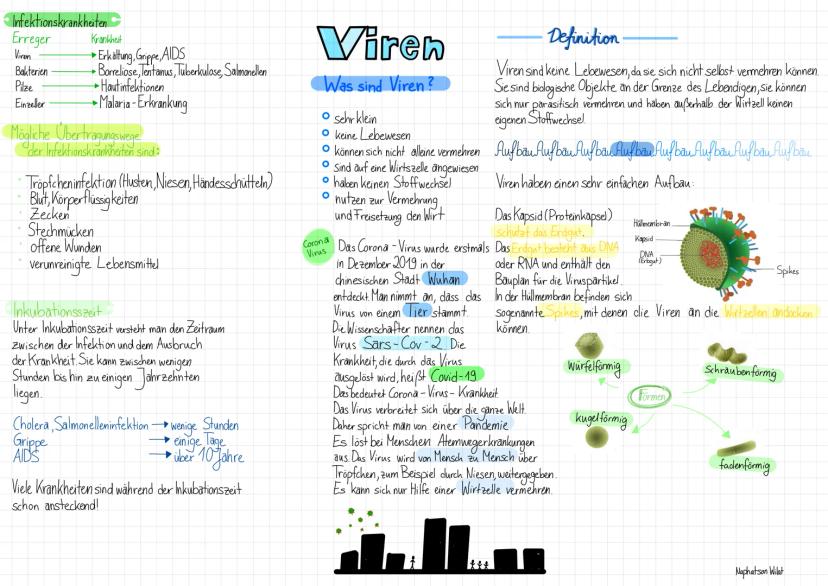 Infektionskrankheiten
Erreger Krankheit
Viren → Erkältung, Grippe, AIDS
Bakterien → Borreliose, Tentamus, Tuberkulose, Salmonellen
Pilze → Hautinfektionen
Einzeller → Malaria-Erkrankung
Mögliche Übertragungswege
der Infektionskrankheiten sind:
Tröpfcheninfektion (Husten, Niesen, Händesschütteln)
Blut, Körperflüssigkeiten
Zecken
Stechmücken
offene Wunden
verunreinigte Lebensmittel
Inkubationsszeit
Unter Inkubationsszeit versteht man den Zeitraum
zwischen der Infektion und dem Ausbruch
der Krankheit. Sie kann zwischen wenigen
Stunden bis hin zu einigen Jahrzehnten
liegen.
Cholera, Salmonelleninfektion → wenige Stunden
Grippe → einige Tage
AIDS → über 10 Jahre
Viele Krankheiten sind während der Inkubationszeit
schon ansteckend!
Viren
Was sind Viren?
sehr klein
keine Lebewesen
können sich nicht alleine vermehren
sind auf eine Wirtszelle angewiesen
haben keinen Stoffwechsel
nutzen zur Vermehrung
und Freisetzung den Wirt
Corona
Virus
Das Corona-Virus wurde erstmals
in Dezember 2019 in der
chinesischen Stadt Wuhan
entdeckt. Man nimmt an, dass das
Virus von einem Tier stammt.
Die Wissenschafter nennen das
Virus Sars-Cov-2. Die
Krankheit, die durch das Virus
ausgelöst wird, heißt Covid-19.
Das bedeutet Corona-Virus-Krankheit.
Das Virus verbreitet sich über die ganze Welt.
Daher spricht man von einer Pandemie
Es löst bei Menschen Atemwegerkrankungen
aus. Das Virus wird von Mensch zu Mensch über
Tröpfchen, zum Beispiel durch Niesen, weitergegeben.
Es kann sich nur Hilfe einer Wirtzelle vermehren.
Definition
Viren sind keine Lebewesen, da sie sich nicht selbst vermehren können.
Sie sind biologische Objekte an der Grenze des Lebendigen, sie können
sich nur parasitisch vermehren und haben außerhalb der Wirtzell keinen
eigenen Stoffwechsel.
Aufbau Aufbau Aufbau Aufbau Aufbau Aufbau Aufbau Aufbau
Viren haben einen sehr einfachen Aufbau:
Das Kapsid (Proteinkapsel)
schützt das Erdgut.
Das Erdgut besteht aus DNA
oder RNA und enthält den
Bauplan für die Viruspartikel.
In der Hüllmembran befinden sich
sogenannte Spikes, mit denen die Viren an die Wirtzellen andocken
können.
Hüllmembran
Kapsid
DNA
(Erbgut)
Spikes
Formen
Würfelförmig
Schraubenförmig
kugelförmig
fadenförmig